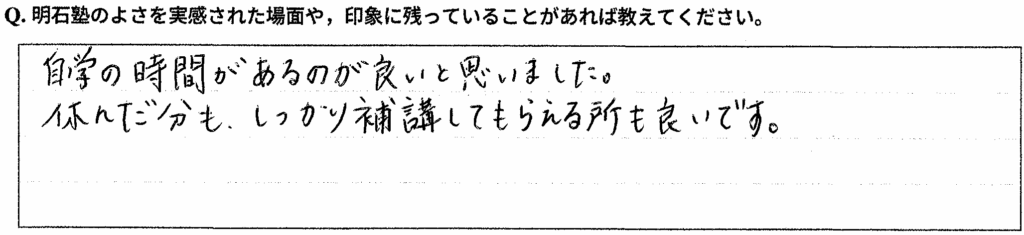 Q. 明石塾のよさを実感された場面や，印象に残っていることがあれば教えてください。
自学の時間があるのが良いと思いました。
休んだ分も、しっかり補講してもらえる所も良いです。